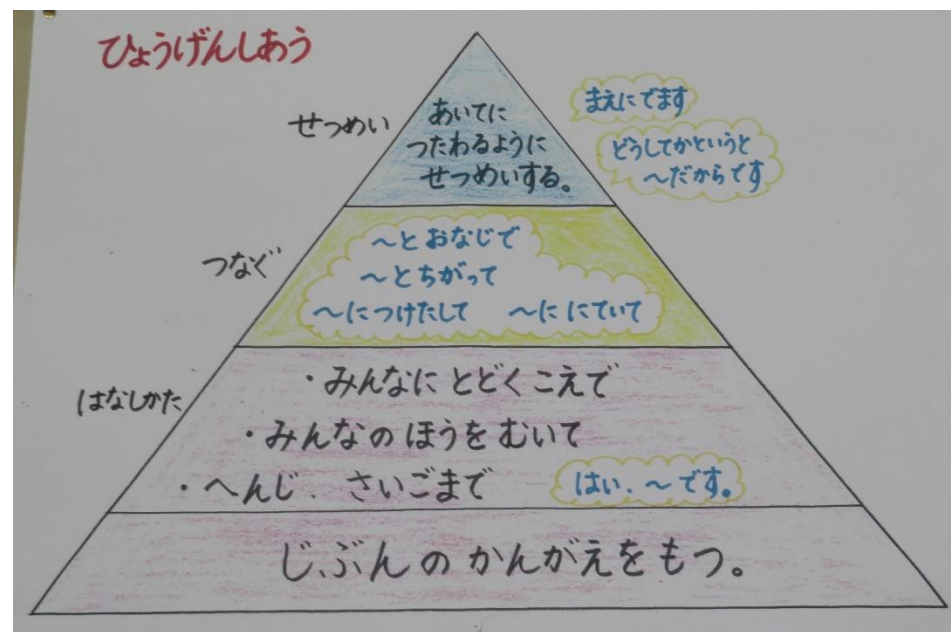 ひょうげんしあう
せつめい
あいてに
つたわるように
せつめいする。
まえにでます
どうしてかというと
〜だからです
つなぐ
〜とおなじで
〜とちがって
〜につけたして 〜ににていて
はなしかた
・みんなにとどくこえで
・みんなのほうをむいて
・へんじ、さいごまで
はい、〜です。
じぶんのかんがえをもつ。